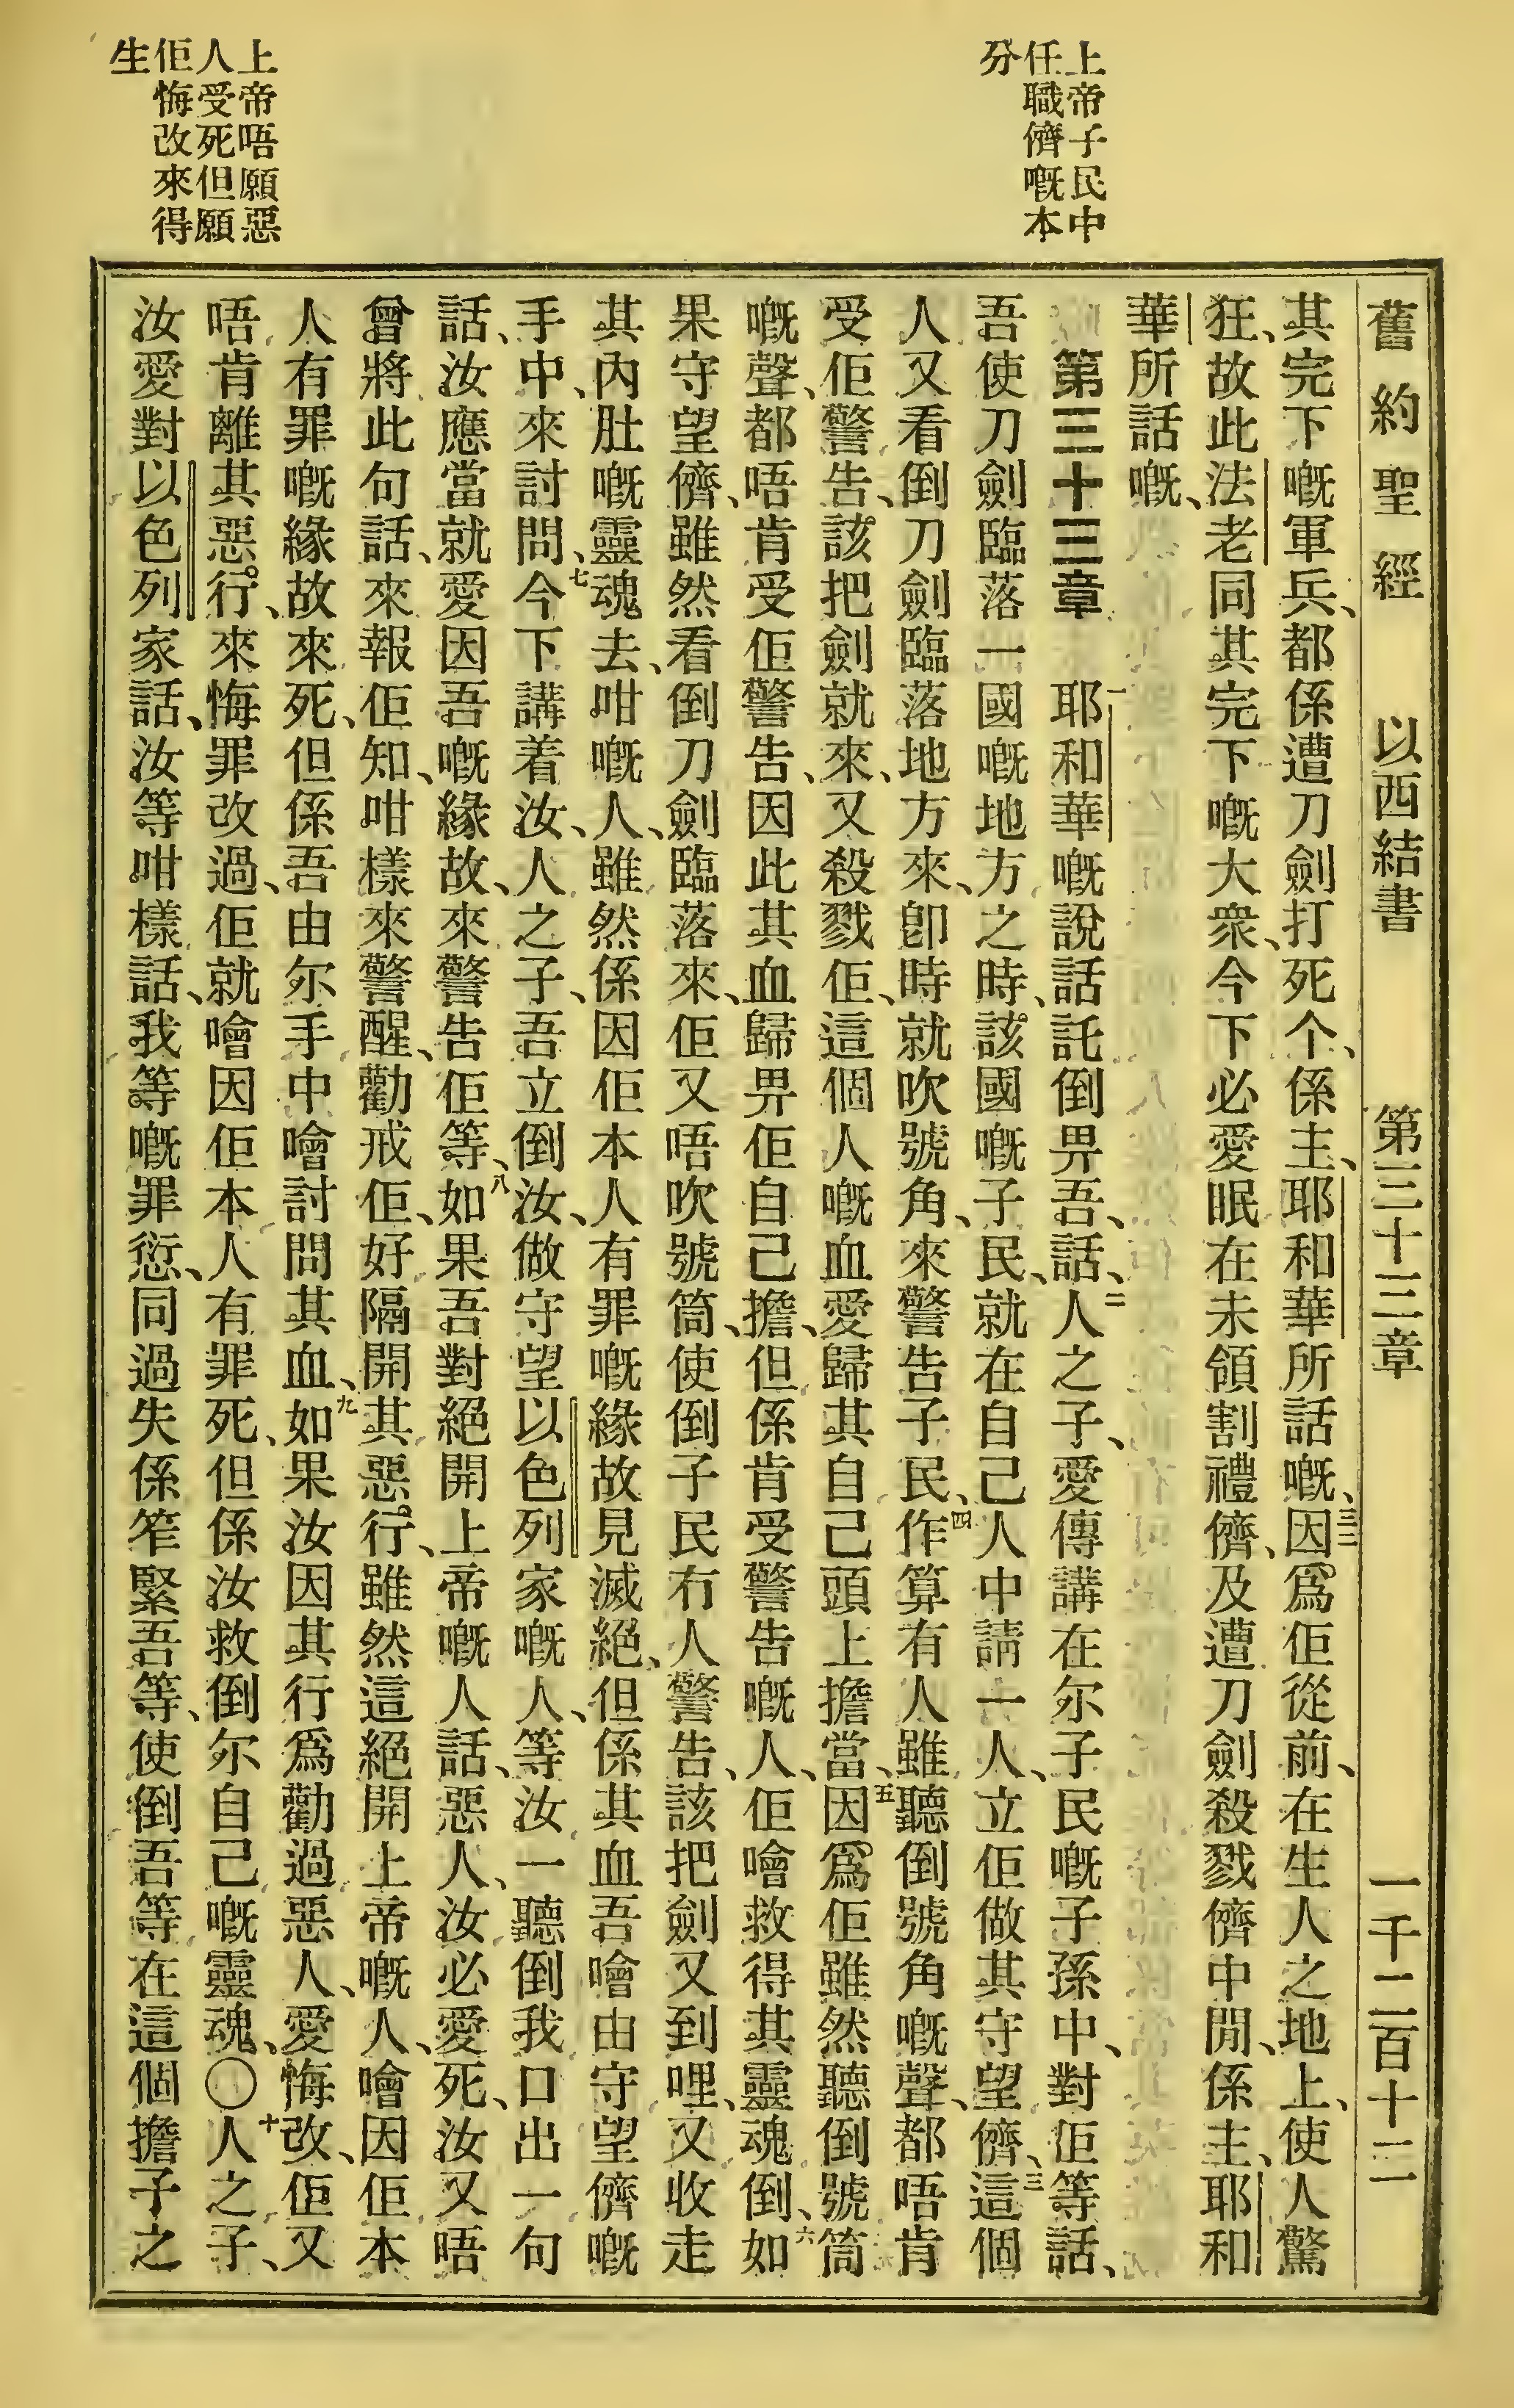 舊約聖經　以西結書　第三十三章　一千二百十二
上帝子民中
任職儕嘅本
分
上帝唔願惡
人受死但願
佢悔改來得
生
其完下嘅軍兵、都係遭刀劍打死个、係主、耶和華所話嘅、三二因爲佢從前、在生人之地上、使人驚
狂、故此法老同其完下嘅大衆、今下必愛眠在未領割禮儕、及遭刀劍殺戮儕中間、係主、耶和
華所話嘅、
第三十三章　一耶和華嘅說話託倒畀吾、話、二人之子、愛傳講在尔子民嘅子孫中、對佢等話、
吾使刀劍臨落一國嘅地方之時、該國嘅子民、就在自己人中請一人、立佢做其守望儕、三這個
人又看倒刀劍臨落地方來、卽時就吹號角、來警告子民、四作算有人雖聽倒號角嘅聲、都唔肯
受佢警告、該把劍就來、又殺戮佢、這個人嘅血愛歸其自己頭上擔當、五因爲佢雖然聽倒號筒
嘅聲、都唔肯受佢警告、因此其血歸畀佢自己擔、但係肯受警告嘅人、佢噲救得其靈魂倒、六如
果守望儕、雖然看倒刀劍臨落來、佢又唔吹號筒、使倒子民冇人警告、該把劍又到哩、又收走
其內肚嘅靈魂去、咁嘅人、雖然係因佢本人有罪嘅緣故見滅絕、但係其血吾噲由守望儕嘅
手中、來討問、七今下講着汝、人之子、吾立倒汝、做守望以色列家嘅人、等汝一聽倒我口出一句
話、汝應當就愛因吾嘅緣故、來警告佢等、八如果吾對絕開上帝嘅人話、惡人、汝必愛死、汝又唔
曾將此句話、來報佢知、咁樣來警醒、勸戒佢、好隔開其惡行、雖然這絕開上帝嘅人、噲因佢本
人有罪嘅緣故來死、但係吾由尔手中噲討問其血、九如果汝因其行爲勸過惡人、愛悔改、佢又
唔肯離其惡行、來悔罪改過、佢就噲因佢本人有罪死、但係汝救倒尔自己嘅靈魂、〇十人之子、
汝愛對以色列家話、汝等咁樣話、我等嘅罪愆、同過失係笮緊吾等、使倒吾等在這個擔子之